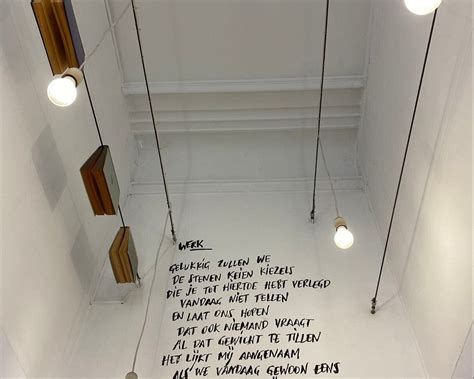 WERK
GELUKKIG ZULLEN WE
DE STENEN KEIEN KIEZELS
DIE JE TOT HIERTOE HEBT VERLEGD
VANDAAG NIET TELLEN
EN LAAT ONS HOPEN
DAT OOK NIEMAND VRAAGT
AL DAT GEWICHT TE TILLEN
HET LIJKT MIJ AANGENAAM
ALS WE VANDAAG GEWOON EENS